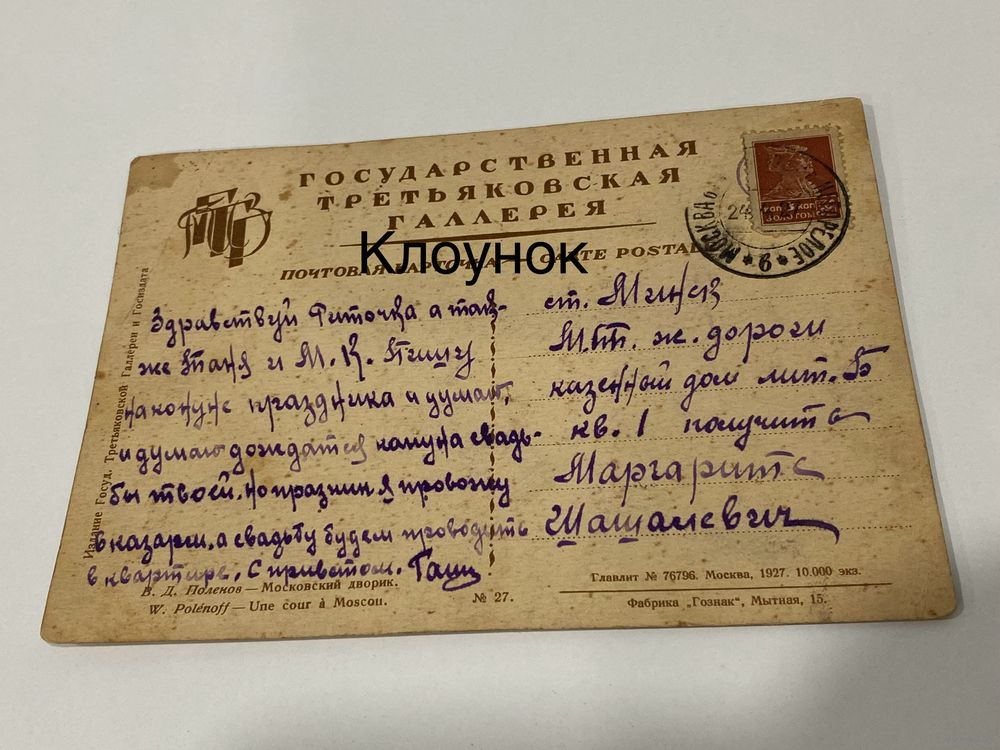 ГОСУДАРСТВЕННАЯ
ТРЕТЬЯКОВСКАЯ
ГАЛЛЕРЕЯ
Клоунок
ПОЧТОВАЯ КАРТОЧКА CARTE POSTALE
МОСКВА
24
9
КОП. ЗОЛОТОМ
Издание Госуд. Третьяковской Галлереи и Госиздата
Здравствуй Риточка а так-
же Таня и М. К. Пишу
наконуне праздника и думаю,
и думаю дождатся кануна свадь-
бы твоей, но празник я провожу
в казарм. а свадьбу будем проводить
в квартире. С приветом.
ст. Минск
М.бб. ж. дороги
казенный дом лит. Б
кв. 1 получить
Маргарите
Шашалевич
В. Д. Поленов — Московский дворик.
W. Polénoff — Une cour à Moscou.
№ 27.
Главлит № 76796. Москва, 1927. 10.000 экз.
Фабрика „Гознак", Мытная, 15.